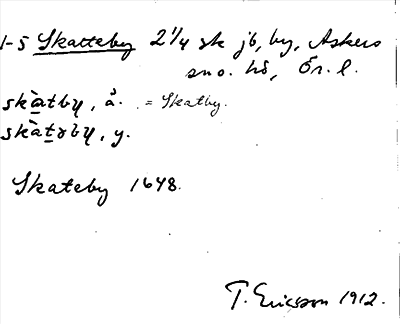 1-5 Skatteby 2 1/4 sk jb, by, Askers
sno. hd, Ör. l.
skàtby, å. = Skatby.
skàtəby, y.
Skateby 1648.
T. Ericsson 1912.